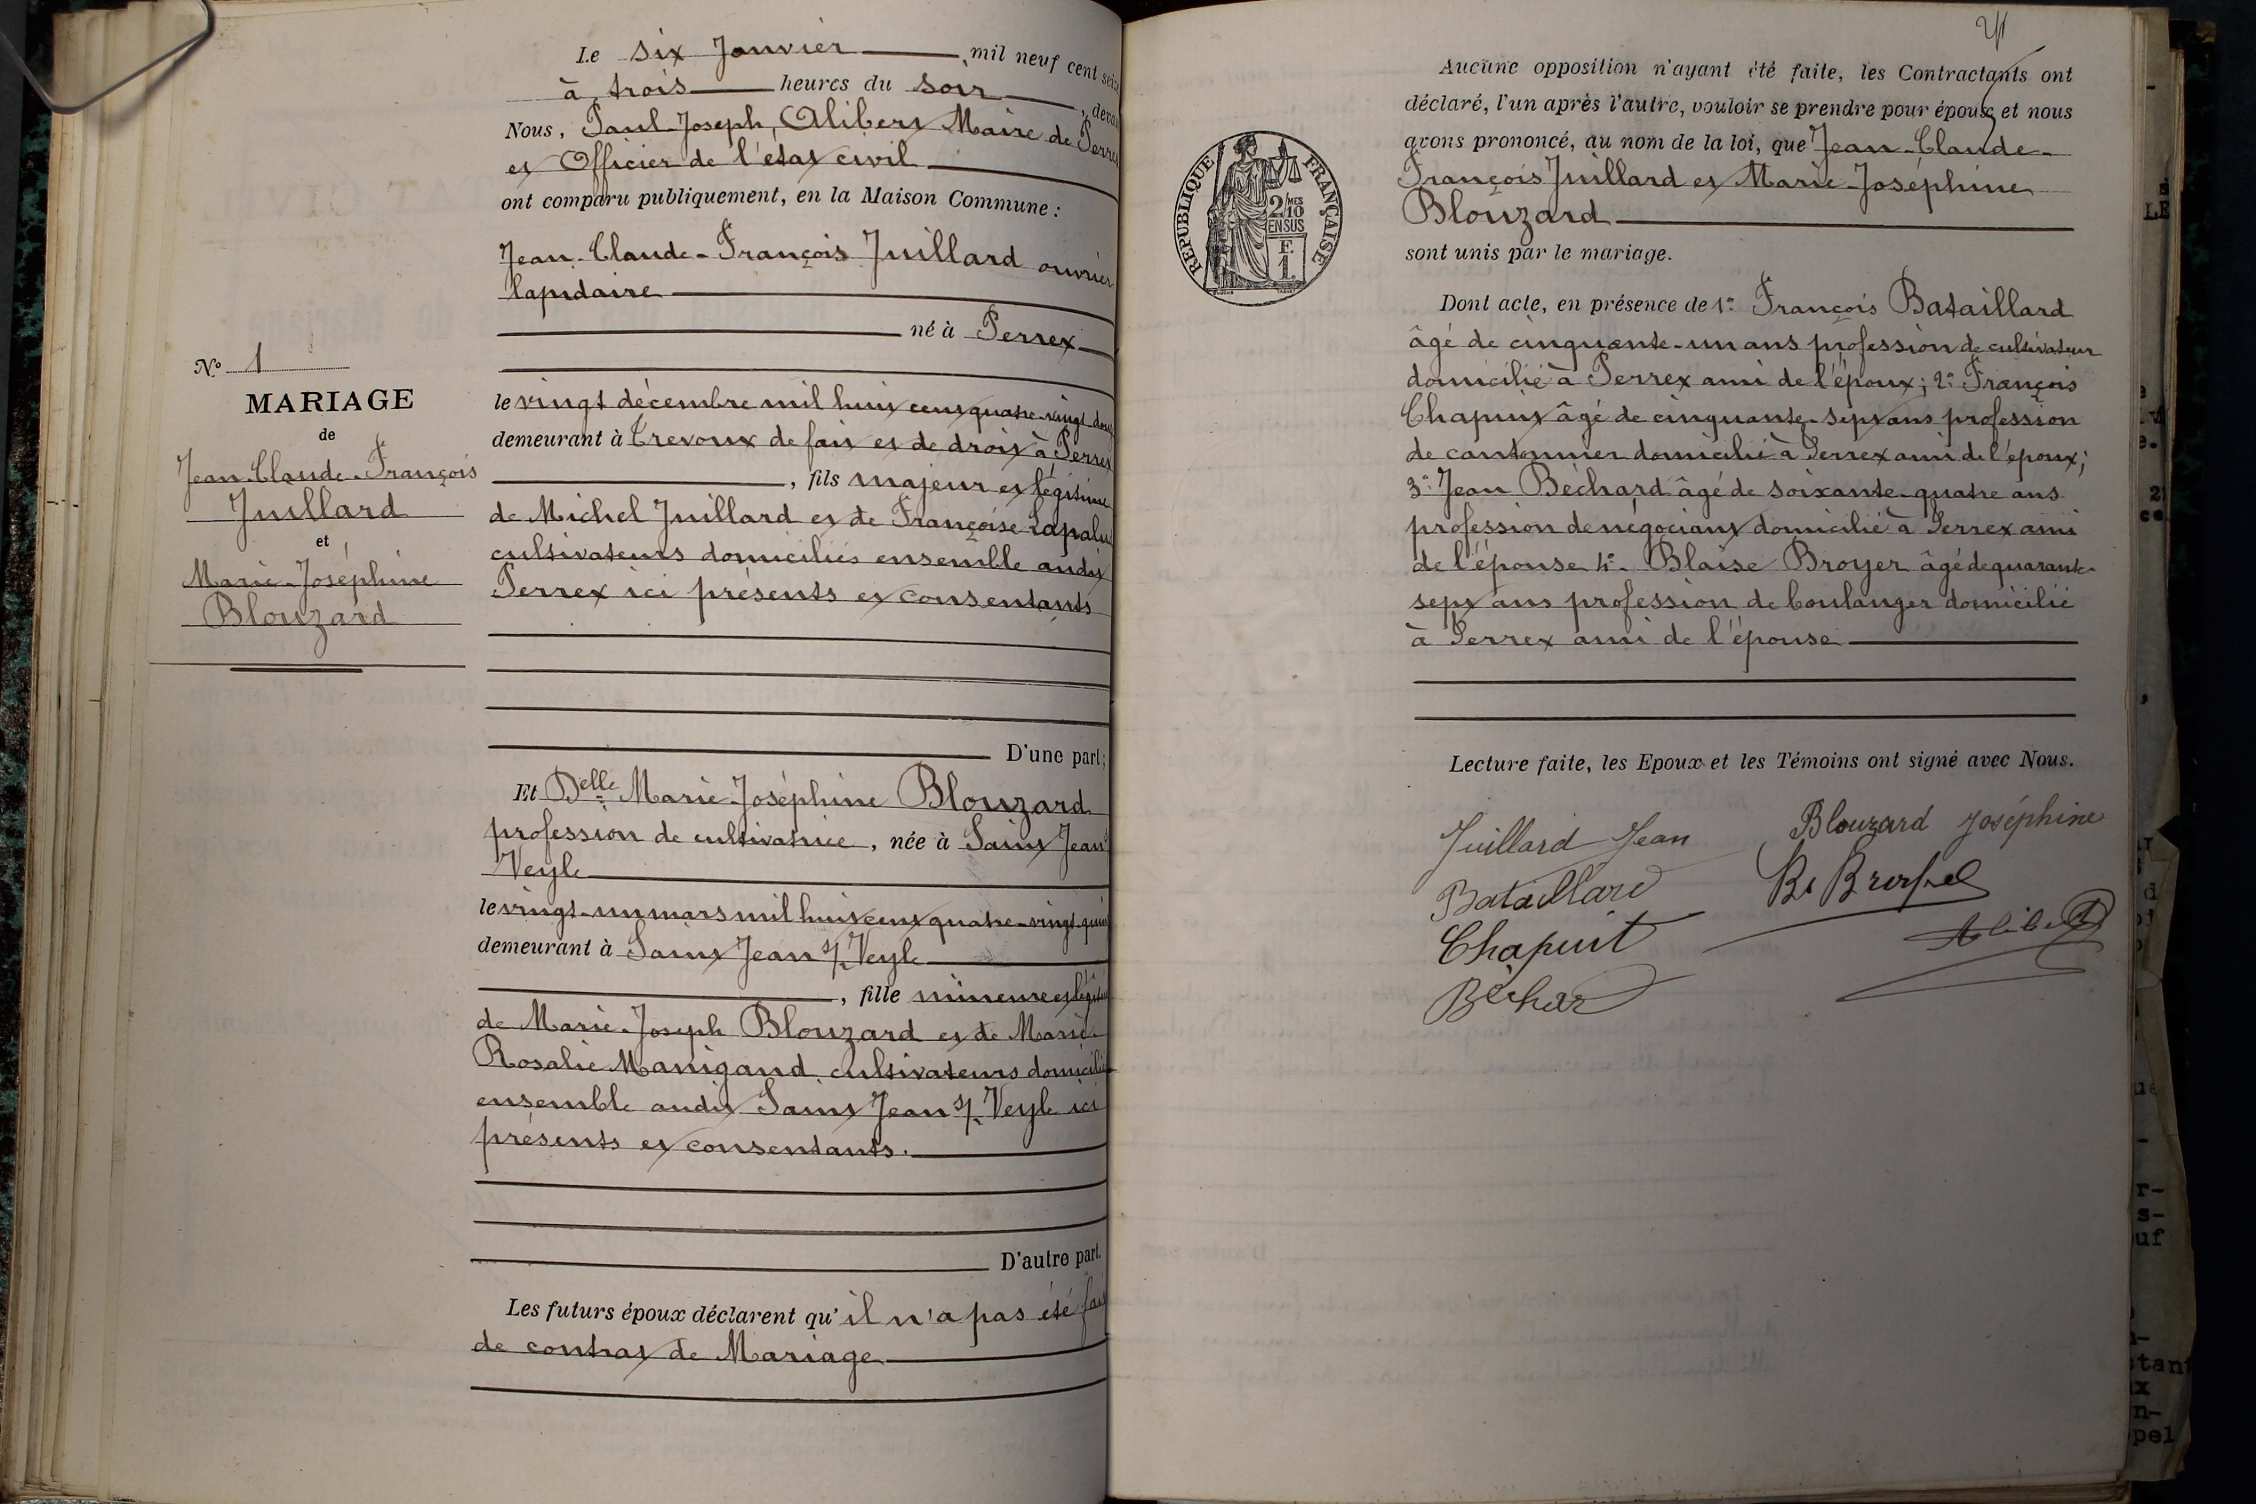 Le six Janvier mil neuf cent seize
à trois heures du soir, devant
Nous, Paul-Joseph, Alibert Maire de Perrex
et Officier de l'état civil
ont comparu publiquement, en la Maison Commune :
Jean-Claude-François Juillard ouvrier
lapidaire
né à Perrex
le vingt décembre mil huit cent quatre-vingt-douze
demeurant à Trevoux de fait et de droit à Perrex
, fils majeur et légitime
de Michel Juillard et de Françoise Lapalu
cultivateurs domiciliés ensemble audit
Perrex ici présents et consentants
D'une part;
Nº 1
MARIAGE
de
Jean-Claude-François
Juillard
et
Marie-Joséphine
Blouzard
Et Delle Marie-Joséphine Blouzard
profession de cultivatrice, née à Saint Jean s/
Veyle
le vingt-un mars mil huit cent quatre-vingt-quinze
demeurant à Saint Jean s/ Veyle
, fille mineure et légitime
de Marie-Joseph Blouzard et de Marie-
Rosalie Manigand cultivateurs domiciliés
ensemble audit Saint Jean s/ Veyle ici
présents et consentants.
D'autre part.
Les futurs époux déclarent qu'il n'a pas été fait
de contrat de Mariage
Aucune opposition n'ayant été faite, les Contractants ont
déclaré, l'un après l'autre, vouloir se prendre pour époux, et nous
avons prononcé, au nom de la loi, que Jean-Claude-
François Juillard et Marie-Joséphine
Blouzard
sont unis par le mariage.
RÉPUBLIQUE FRANÇAISE
2/10 MES
EN SUS
F.
1
Dont acte, en présence de 1º François Bataillard
âgé de cinquante-un ans profession de cultivateur
domicilié à Perrex ami de l'époux; 2º François
Chapuit âgé de cinquante-sept ans profession
de cantonnier domicilié à Perrex ami de l'époux;
3º Jean Béchard âgé de soixante-quatre ans
profession de négociant domicilié à Perrex ami
de l'épouse 4º Blaise Broyer âgé de quarante-
sept ans profession de boulanger domicilié
à Perrex ami de l'épouse
Lecture faite, les Epoux et les Témoins ont signé avec Nous.
Juillard Jean Blouzard Joséphine
Bataillard
Chapuit Alibert
Béchar